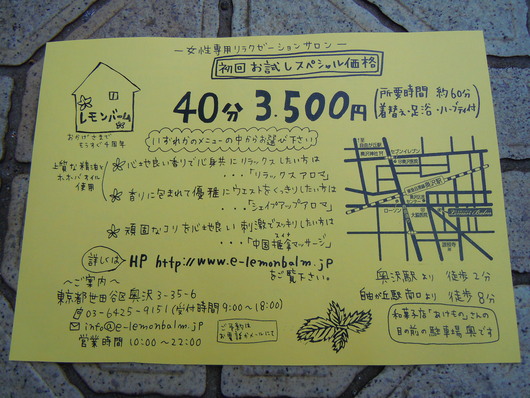 ー女性専用リラクゼーションサロンー
初回お試しスペシャル価格
レモンバーム
おかげさまで
もうすぐ4周年
40分 3.500円
所要時間 約60分
着替え・足浴・ハーブティ付
いずれかのメニューの中からお選び下さい
上質な精油と
ホホバオイル
使用
心地良い香りで心身共にリラックスしたい方は
・・・「リラックスアロマ」
香りに包まれて優雅にウエストをくっきりしたい方は
・・・「シェイプアップアロマ」
頑固なコリを心地良い刺激でスッキリしたい方は
・・・「中国推拿マッサージ」
スイナ
詳しくは HP http://www.e-lemonbalm.jp
をご覧下さい。
〜ご案内〜
東京都世田谷区奥沢3-35-6
03-6425-9151 (受付時間9:00〜18:00)
info@e-lemonbalm.jp
営業時間 10:00〜22:00
ご予約は
お電話かメールにて
セブンイレブン
奥沢駅
ローソン
奥沢駅より 徒歩2分
自由が丘駅南口より 徒歩8分
和菓子店「あけもの」さんの
目の前の駐車場奥です